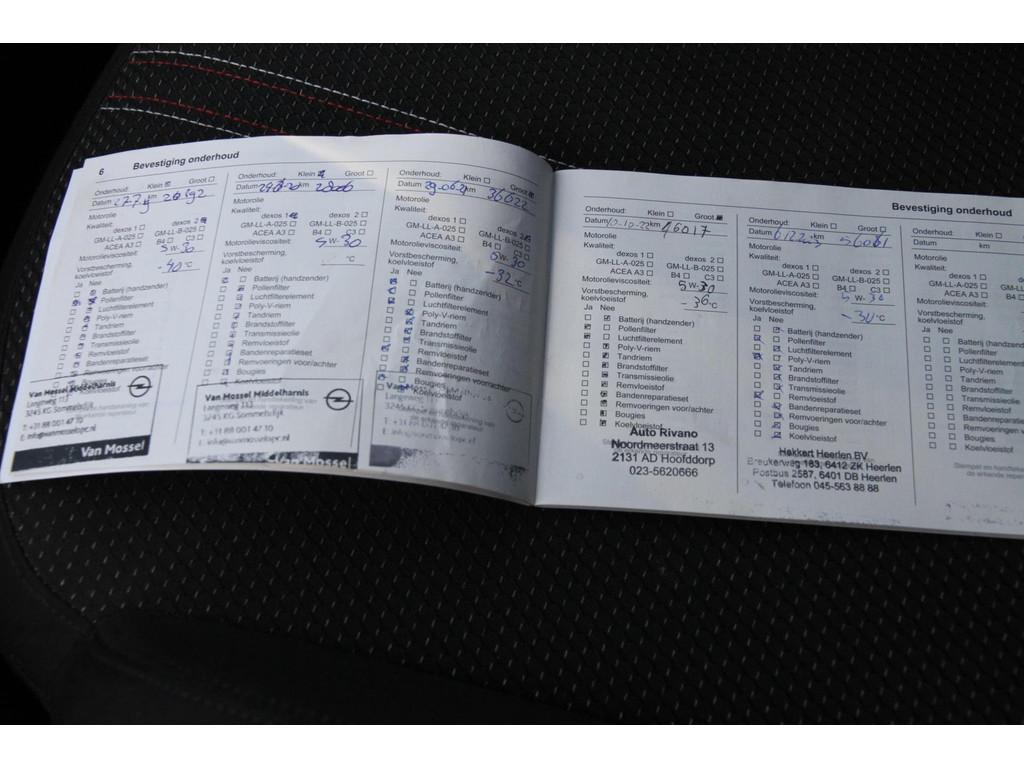 6 Bevestiging onderhoud
Onderhoud: Klein Groot
Datum km
Motorolie
Kwaliteit:
dexos 1 dexos 2
GM-LL-A-025 GM-LL-B-025
ACEA A3 B4 C3
Motorolieviscositeit: 5W-30
Vorstbescherming, koelvloeistof -40 °C
Ja Nee
Batterij (handzender)
Pollenfilter
Luchtfilterelement
Poly-V-riem
Tandriem
Brandstoffilter
Transmissieolie
Remvloeistof
Bandenreparatieset
Van Mossel Middelharnis
Langeweg 113
3245 KG Sommelsdijk
T: +31 88 001 47 10
Van Mossel
Onderhoud: Klein Groot
Datum km
Motorolie
Kwaliteit:
dexos 1 dexos 2
GM-LL-A-025 GM-LL-B-025
ACEA A3 B4 C3
Motorolieviscositeit: 5W-30
Vorstbescherming, koelvloeistof °C
Ja Nee
Batterij (handzender)
Pollenfilter
Luchtfilterelement
Poly-V-riem
Tandriem
Brandstoffilter
Transmissieolie
Remvloeistof
Bandenreparatieset
Remvoeringen voor/achter
Bougies
Koelvloeistof
Van Mossel Middelharnis
Langeweg 113
3245 KG Sommelsdijk
T: +31 88 001 47 10
Van Mossel
Onderhoud: Klein Groot
Datum km 36022
Motorolie
Kwaliteit:
dexos 1 dexos 2
GM-LL-A-025 GM-LL-B-025
ACEA A3 B4 C3
Motorolieviscositeit: 5W-30
Vorstbescherming, koelvloeistof -32 °C
Ja Nee
Batterij (handzender)
Pollenfilter
Luchtfilterelement
Poly-V-riem
Tandriem
Brandstoffilter
Transmissieolie
Remvloeistof
Bandenreparatieset
Remvoeringen voor/achter
Bougies
Koelvloeistof
Bevestiging onderhoud
Onderhoud: Klein Groot
Datum km 46017
Motorolie
Kwaliteit:
dexos 1 dexos 2
GM-LL-A-025 GM-LL-B-025
ACEA A3 B4 C3
Motorolieviscositeit: 5W-30
Vorstbescherming, koelvloeistof -36 °C
Ja Nee
Batterij (handzender)
Pollenfilter
Luchtfilterelement
Poly-V-riem
Tandriem
Brandstoffilter
Transmissieolie
Remvloeistof
Bandenreparatieset
Remvoeringen voor/achter
Bougies
Koelvloeistof
Auto Rivano
Noordmeerstraat 13
2131 AD Hoofddorp
023-5620666
Onderhoud: Klein Groot
Datum km 56061
Motorolie
Kwaliteit:
dexos 1 dexos 2
GM-LL-A-025 GM-LL-B-025
ACEA A3 B4 C3
Motorolieviscositeit: 5W-30
Vorstbescherming, koelvloeistof °C
Ja Nee
Batterij (handzender)
Pollenfilter
Luchtfilterelement
Poly-V-riem
Tandriem
Brandstoffilter
Transmissieolie
Remvloeistof
Bandenreparatieset
Remvoeringen voor/achter
Bougies
Koelvloeistof
Hekkert Heerlen BV
Breukerweg 183, 6412 ZK Heerlen
Postbus 2587, 6401 DB Heerlen
Telefoon 045-563 88 88
Onderhoud: Klein
Datum km
Motorolie
Kwaliteit:
dexos 1
GM-LL-A-025 GM-LL
ACEA A3 B4
Motorolieviscositeit:
Vorstbescherming, koelvloeistof
Ja Nee
Batterij (handzender)
Pollenfilter
Luchtfilterelement
Poly-V-riem
Tandriem
Brandstoffilter
Transmissieolie
Remvloeistof
Bandenreparatieset
Remvoeringen voor/
Bougies
Koelvloeistof